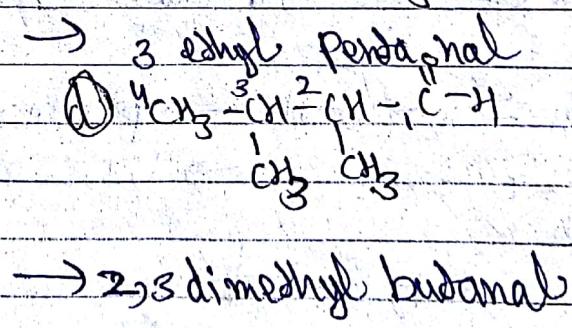 → 3 ethyl pentanal
O
(d) ⁴CH₃ - ³CH - ²CH - ₁C - H
CH₃ CH₃
→ 2,3 dimethyl butanal